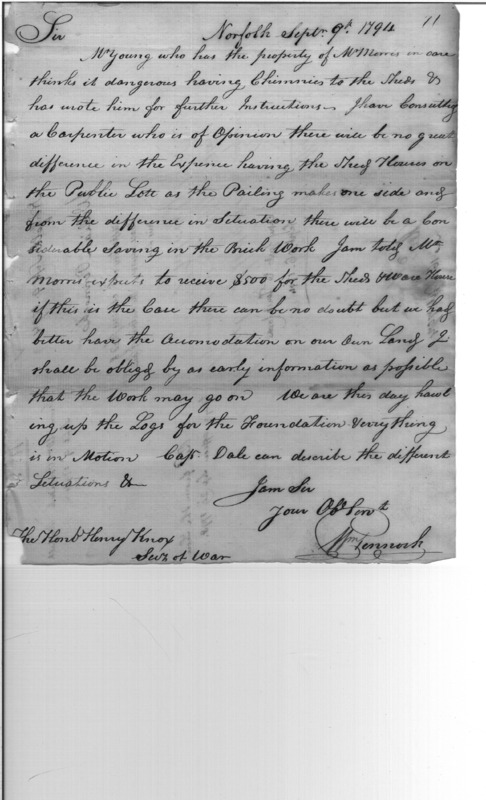 11
Sir Norfolk Septr. 9th. 1794
Mr Young who has the property of Mr Morris in care
thinks it dangerous having Chimnies to the Sheds &
has wrote him for further Instructions - I have Consulted
a Carpenter who is of Opinion there will be no great
difference in the Expence having the Shed Houses on
the Public Lott as the Pailing makes one side and
from the difference in Situation there will be a Con
siderable Saving in the Brick Work I am told Mr
Morris expects to receive $500 for the Sheds & Ware House
if this is the Case there can be no doubt but we had
better have the Acomodation on our Own Land I
shall be obligd by as early information as possible
that the Work may go on We are this day hawl
ing up the Logs for the Foundation & everything
is in Motion Capt. Dale can describe the different
Situations &c
I am Sir
Your Obt Servt
Wm Pennock
The Honbl Henry Knox
Secy of War